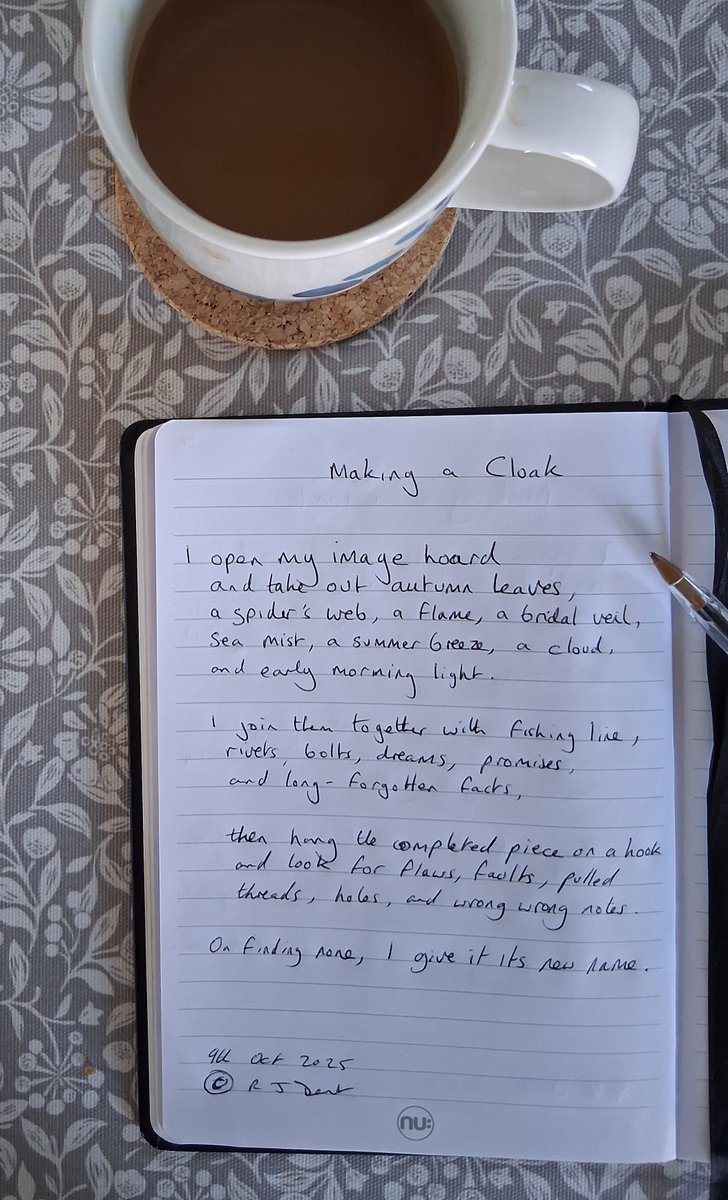 Making a Cloak
I open my image hoard
and take out autumn leaves,
a spider's web, a flame, a bridal veil,
sea mist, a summer breeze, a cloud,
and early morning light.
I join them together with fishing line,
rivets, bolts, dreams, promises,
and long-forgotten facts,
then hang the completed piece on a hook
and look for flaws, faults, pulled
threads, holes, and wrong wrong notes.
On finding none, I give it its new name.
9th Oct 2025
© R J Dent
nu: